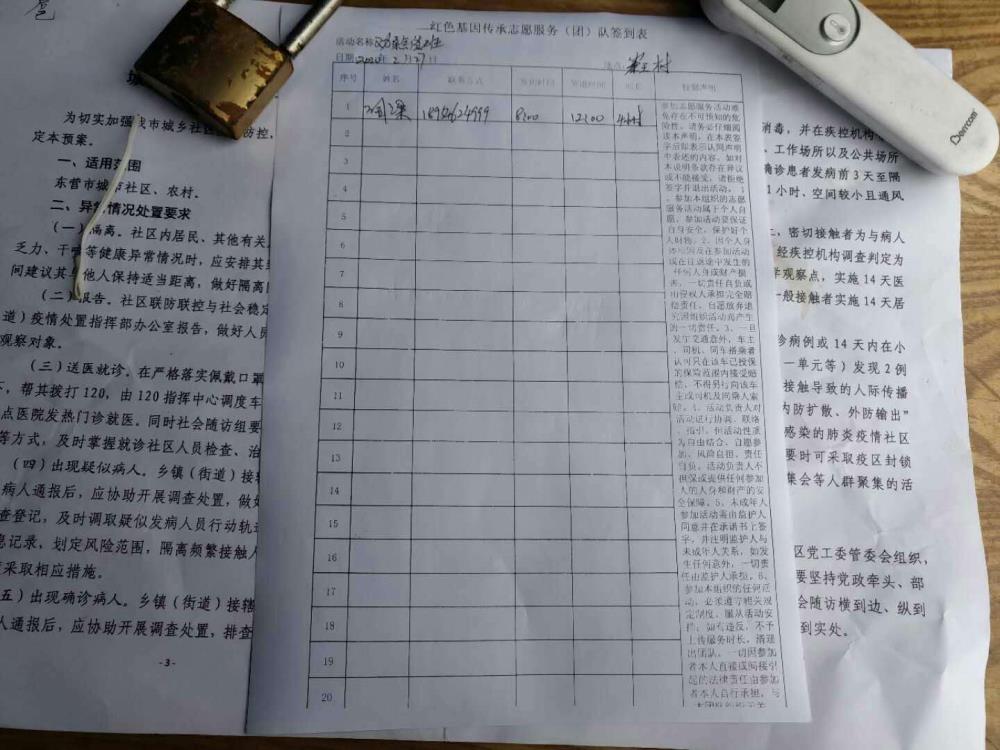 为切实加强我市城乡社区
防控,
定本预案。
一、适用范围
东营市城市社区、农村。
二、异常情况处置要求
(一)隔离。社区内居民、其他有关
乏力、干咳等健康异常情况时,应安排其
间建议其与他人保持适当距离,做好隔离
(二)报告。社区联防联控与社会稳定
道)疫情处置指挥部办公室报告,做好人员
观察对象。
(三)送医就诊。在严格落实佩戴口罩
帮其拨打120,由120指挥中心调度车
点医院发热门诊就医。同时社会随访组要
等方式,及时掌握就诊社区人员检查、治
(四)出现疑似病人。乡镇(街道)接辖
病人通报后,应协助开展调查处置,做好
查登记,及时调取疑似发病人员行动轨迹
息记录,划定风险范围,隔离频繁接触人
采取相应措施。
五)出现确诊病人。乡镇(街道)接辖
人通报后,应协助开展调查处置,排查
-3-
红色基因传承志愿服务(团)队签到表
活动名称
日期 2020年2月27日
地点:
村
序号 姓名 联系方式 签到时间 签退时间 时长 特别声明
1
8:00 12:00 4小时
2
3
4
5
6
7
8
9
10
11
12
13
14
15
16
17
18
19
20
参加志愿服务活动难
免存在不可预知的危
险性。请务必仔细阅
读本声明,在本表签
字后即表示认同声明
中表述的内容。如对
本说明条款存在异议
或不能接受,请拒绝
签字并退出活动。1
、参加本组织的志愿
服务活动属于个人自
愿,参加活动要保证
自身安全,保护好个
人财物。2、因个人身
体原因及在参加活动
或在往返途中发生的
任何人身或财产损
害,一切责任自负或
由侵权人承担完全赔
偿责任,自愿放弃追
究因组织活动而产生
的一切责任。3、一旦
发生交通意外,车主
、司机、同车搭乘者
认可只在该车已投保
的保险范围内接受赔
偿,不得另行向该车
主或司机及同乘人索
赔。4、活动负责人对
活动进行协调、联络
、指引,但活动性质
为自由结合、自愿参
加、风险自担、责任
自负。活动负责人不
担保或提供任何参加
人的人身和财产的安
全保障。5、未成年人
参加活动需由监护人
同意并在承诺书上签
字,并注明监护人与
未成年人关系,如发
生任何意外,一切责
任由监护人承担。6、
参加本组织的任何活
动,必须遵守相关规
定制度,服从活动安
排;如有违反,不予
上传服务时长,清退
出团队。一切因参加
者本人直接或间接引
起的法律责任由参加
者本人自行承担,与
Berrcom
消毒,并在疾控机构
、工作场所以及公共场所
确诊患者发病前3天至隔
1小时、空间较小且通风
密切接触者为与病人
经疾控机构调查判定为
学观察点,实施14天医
一般接触者实施14天居
诊病例或14天内在小
一单元等)发现2例
接触导致的人际传播
内防扩散、外防输出”
感染的肺炎疫情社区
要时可采取疫区封锁
集会等人群聚集的活
区党工委管委会组织,
要坚持党政牵头、部
会随访横到边、纵到
到实处。